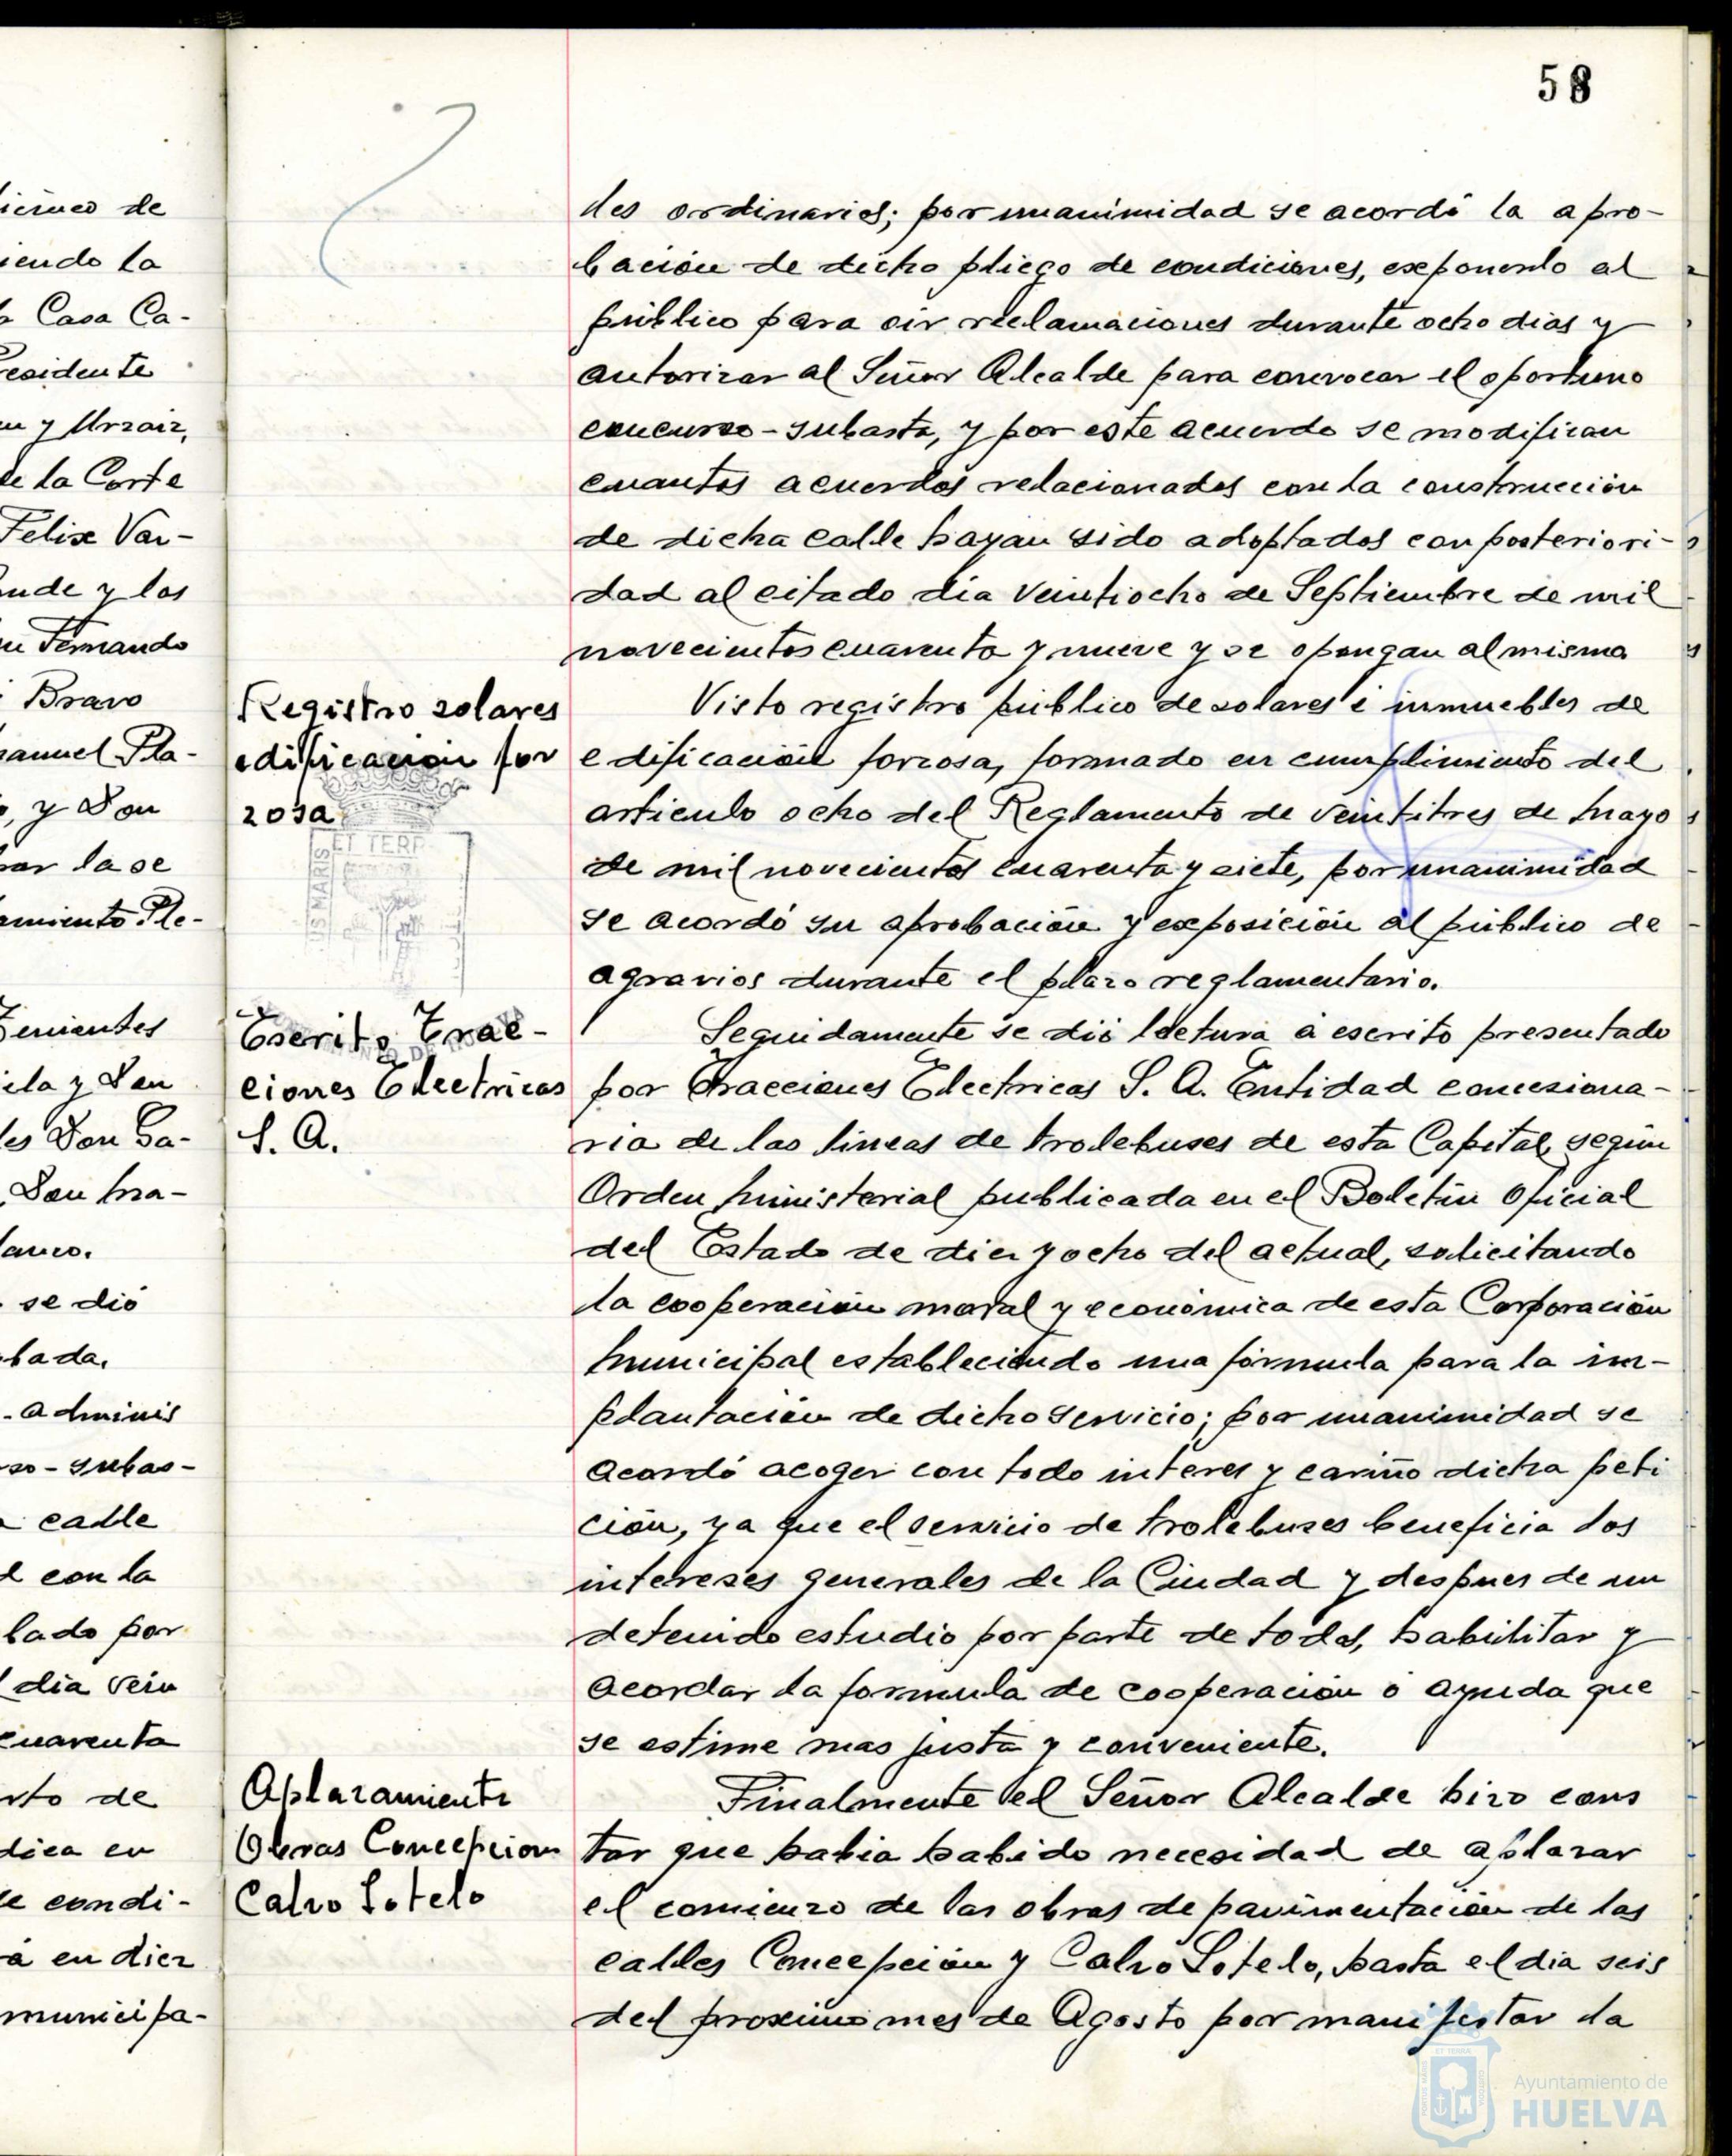 58
icinco de
iendo la
a Casa Ca-
residente
n y Urzaiz,
de la Corte
Felix Var-
unde y los
n Fernando
i Bravo
anuel Pla-
o, y Don
rar la se
amiento Ple-
Tenientes
ila y Don
les Don Ga-
Don Ma-
lanco.
se dió
bada.
- adminis
so-subas-
a calle
d con la
lado por
l dia vein
cuarenta
rto de
dica en
e condi-
á en diez
municipa-
les ordinarios; por unanimidad se acordó la apro-
bación de dicho pliego de condiciones, exponerlo al
público para oir reclamaciones durante ocho dias y
autorizar al Señor Alcalde para convocar el oportuno
concurso-subasta, y por este acuerdo se modifican
cuantos acuerdos relacionados con la construcción
de dicha calle hayan sido adoptados con posteriori-
dad al citado dia veintiocho de Septiembre de mil
novecientos cuarenta y nueve y se opongan al misma
Registro solares
edificación for
zosa
Visto registro público de solares é inmuebles de
edificación forzosa, formado en cumplimiento del
articulo ocho del Reglamento de veintitres de Mayo
de mil novecientos cuarenta y siete, por unanimidad
se acordó su aprobación y exposición al público de
agravios durante el plazo reglamentario.
ET TERR
US MARIS
Escrito Trac-
ciones Electricas
S. A.
Seguidamente se dió lectura á escrito presentado
por Tracciones Electricas S. A. Entidad concesiona-
ria de las lineas de trolebuses de esta Capital, según
Orden Ministerial publicada en el Boletin Oficial
del Estado de diez y ocho del actual, solicitando
la cooperación moral y económica de esta Corporación
Municipal estableciendo una fórmula para la im-
plantación de dicho servicio; por unanimidad se
acordó acoger con todo interes y cariño dicha peti
ción, ya que el servicio de trolebuses beneficia los
intereses generales de la Ciudad y despues de un
detenido estudio por parte de todos, habilitar y
acordar la formula de cooperación ó ayuda que
se estime mas justa y conveniente.
Aplazamiento
Obras Concepcion
Calvo Sotelo
Finalmente el Señor Alcalde hizo cons
tar que habia habido necesidad de aplazar
el comienzo de las obras de pavimentación de las
calles Concepción y Calvo Sotelo, hasta el dia seis
del proximo mes de Agosto por manifestar la
Ayuntamiento de
HUELVA